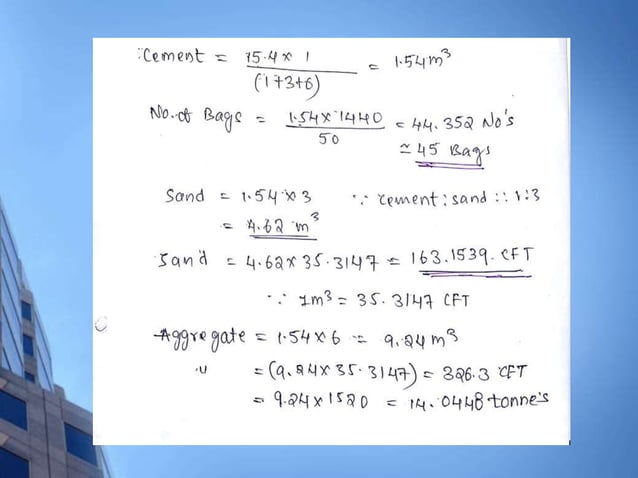 ∴ Cement = 15.4 x 1 / (1+3+6) = 1.54 m³
No. of Bags = 1.54 x 1440 / 50 = 44.352 No's
≃ 45 Bags
Sand = 1.54 x 3 ∵ cement : sand :: 1:3
= 4.62 m³
Sand = 4.62 x 35.3147 = 163.1539 CFT
∵ 1m³ = 35.3147 CFT
Aggregate = 1.54 x 6 = 9.24 m³
" = (9.24 x 35.3147) = 326.3 CFT
= 9.24 x 1520 = 14.0448 tonne's